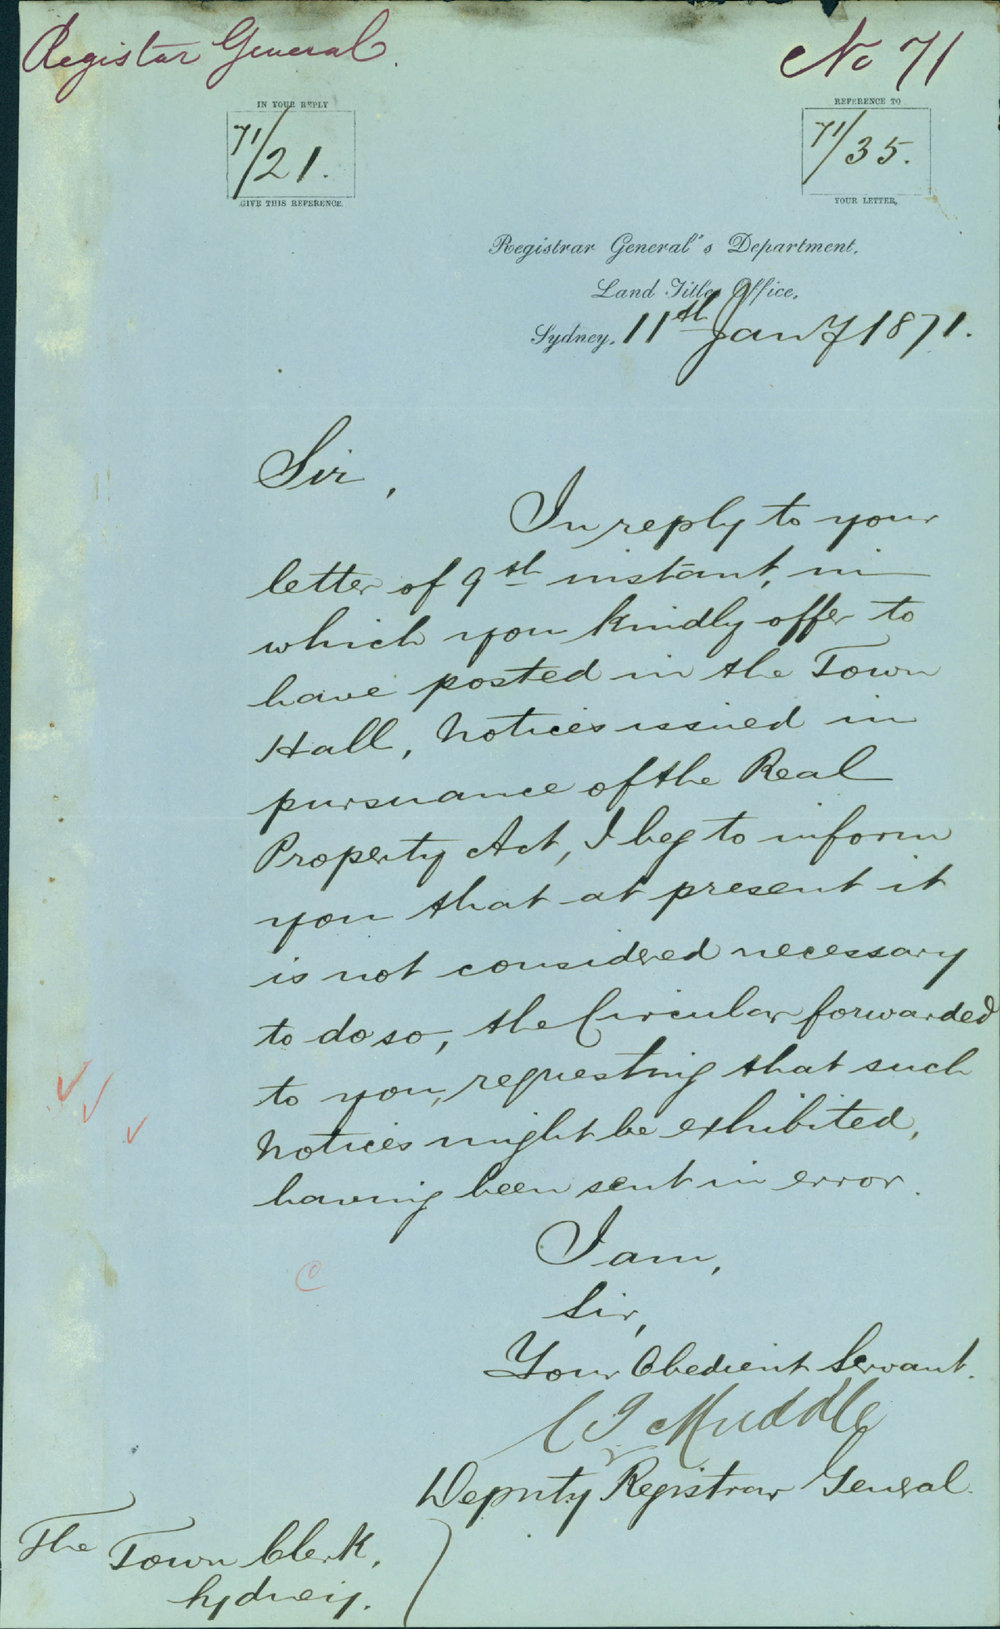 Registar General.
No 71
IN YOUR REPLY
71/21.
GIVE THIS REFERENCE.
REFERENCE TO
71/35.
YOUR LETTER,
Registrar General's Department,
Land Titles Office,
Sydney, 11th Jany 1871.
Sir,
In reply to your
letter of 9th instant, in
which you kindly offer to
have posted in the Town
Hall, Notices issued in
pursuance of the Real
Property Act, I beg to inform
you that at present it
is not considered necessary
to do so, the Circular forwarded
to you, requesting that such
Notices might be exhibited,
having been sent in error.
I am,
Sir,
Your Obedient Servant.
Muddle
Deputy Registrar General.
The Town Clerk,
Sydney.